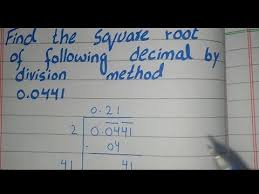 Find the square root
of following decimal by
division method
0.0441
0.21
2 0.0441
- 04
41 41